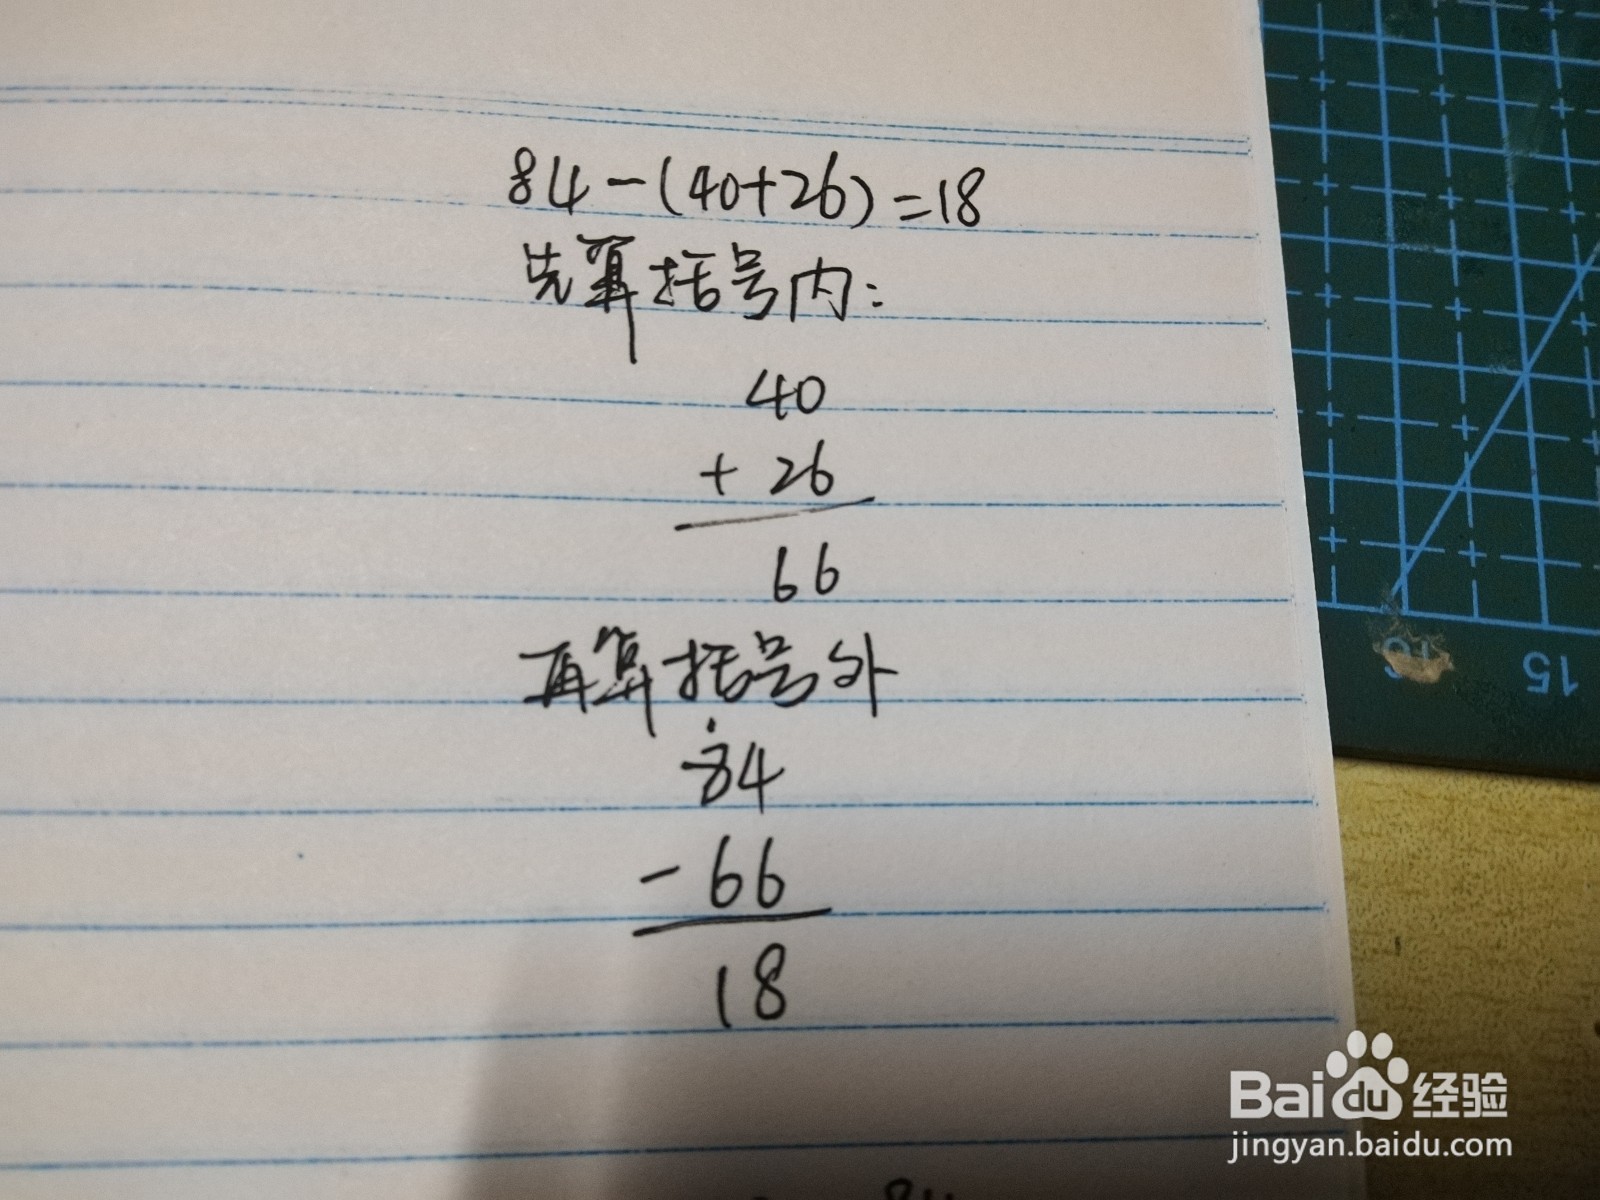 84-(40+26)=18
先算括号内:
40
+ 26
66
再算括号外
84
- 66
18
15
Baidu 经验
jingyan.baidu.com